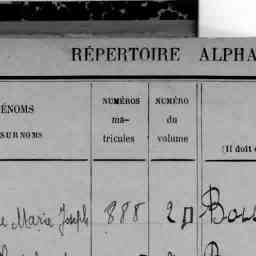 RÉPERTOIRE ALPHA
ÉNOMS
SURNOMS
NUMÉROS
ma-
tricules
NUMÉRO
du
volume
(Il doit
e Marie Joseph 888 2